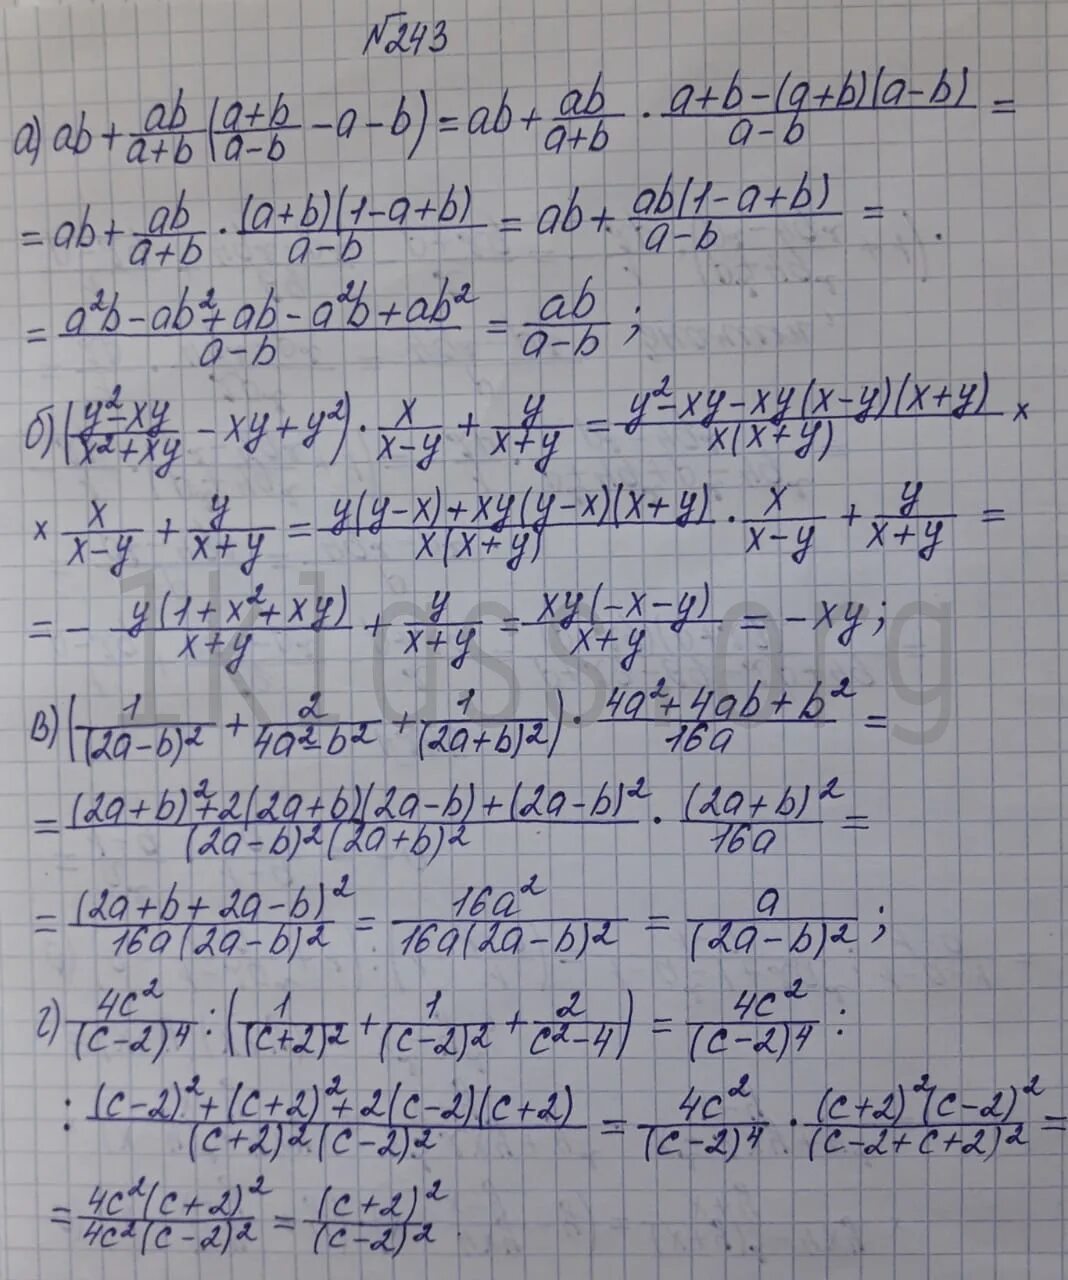 №243
а) ab + \frac{ab}{a+b} (\frac{a+b}{a-b} - a - b) = ab + \frac{ab}{a+b} · \frac{a+b-(a+b)(a-b)}{a-b} =
= ab + \frac{ab}{a+b} · \frac{(a+b)(1-a+b)}{a-b} = ab + \frac{ab(1-a+b)}{a-b} =
= \frac{a²b - ab² + ab - a²b + ab²}{a-b} = \frac{ab}{a-b};
б) (\frac{y²-xy}{x²+xy} - xy + y²) · \frac{x}{x-y} + \frac{y}{x+y} = \frac{y²-xy-xy(x-y)(x+y)}{x(x+y)} ×
× \frac{x}{x-y} + \frac{y}{x+y} = \frac{y(y-x)+xy(y-x)(x+y)}{x(x+y)} · \frac{x}{x-y} + \frac{y}{x+y} =
= - \frac{y(1+x²+xy)}{x+y} + \frac{y}{x+y} = \frac{xy(-x-y)}{x+y} = -xy;
в) (\frac{1}{(2a-b)²} + \frac{2}{4a²-b²} + \frac{1}{(2a+b)²}) · \frac{4a²+4ab+b²}{16a} =
= \frac{(2a+b)²+2(2a+b)(2a-b)+(2a-b)²}{(2a-b)²(2a+b)²} · \frac{(2a+b)²}{16a} =
= \frac{(2a+b+2a-b)²}{16a(2a-b)²} = \frac{16a²}{16a(2a-b)²} = \frac{a}{(2a-b)²};
г) \frac{4c²}{(c-2)⁴} : (\frac{1}{(c+2)²} + \frac{1}{(c-2)²} + \frac{2}{c²-4}) = \frac{4c²}{(c-2)⁴} :
: \frac{(c-2)²+(c+2)²+2(c-2)(c+2)}{(c+2)²(c-2)²} = \frac{4c²}{(c-2)⁴} · \frac{(c+2)²(c-2)²}{(c-2+c+2)²} =
= \frac{4c²(c+2)²}{4c²(c-2)²} = \frac{(c+2)²}{(c-2)²}.
1klass.org